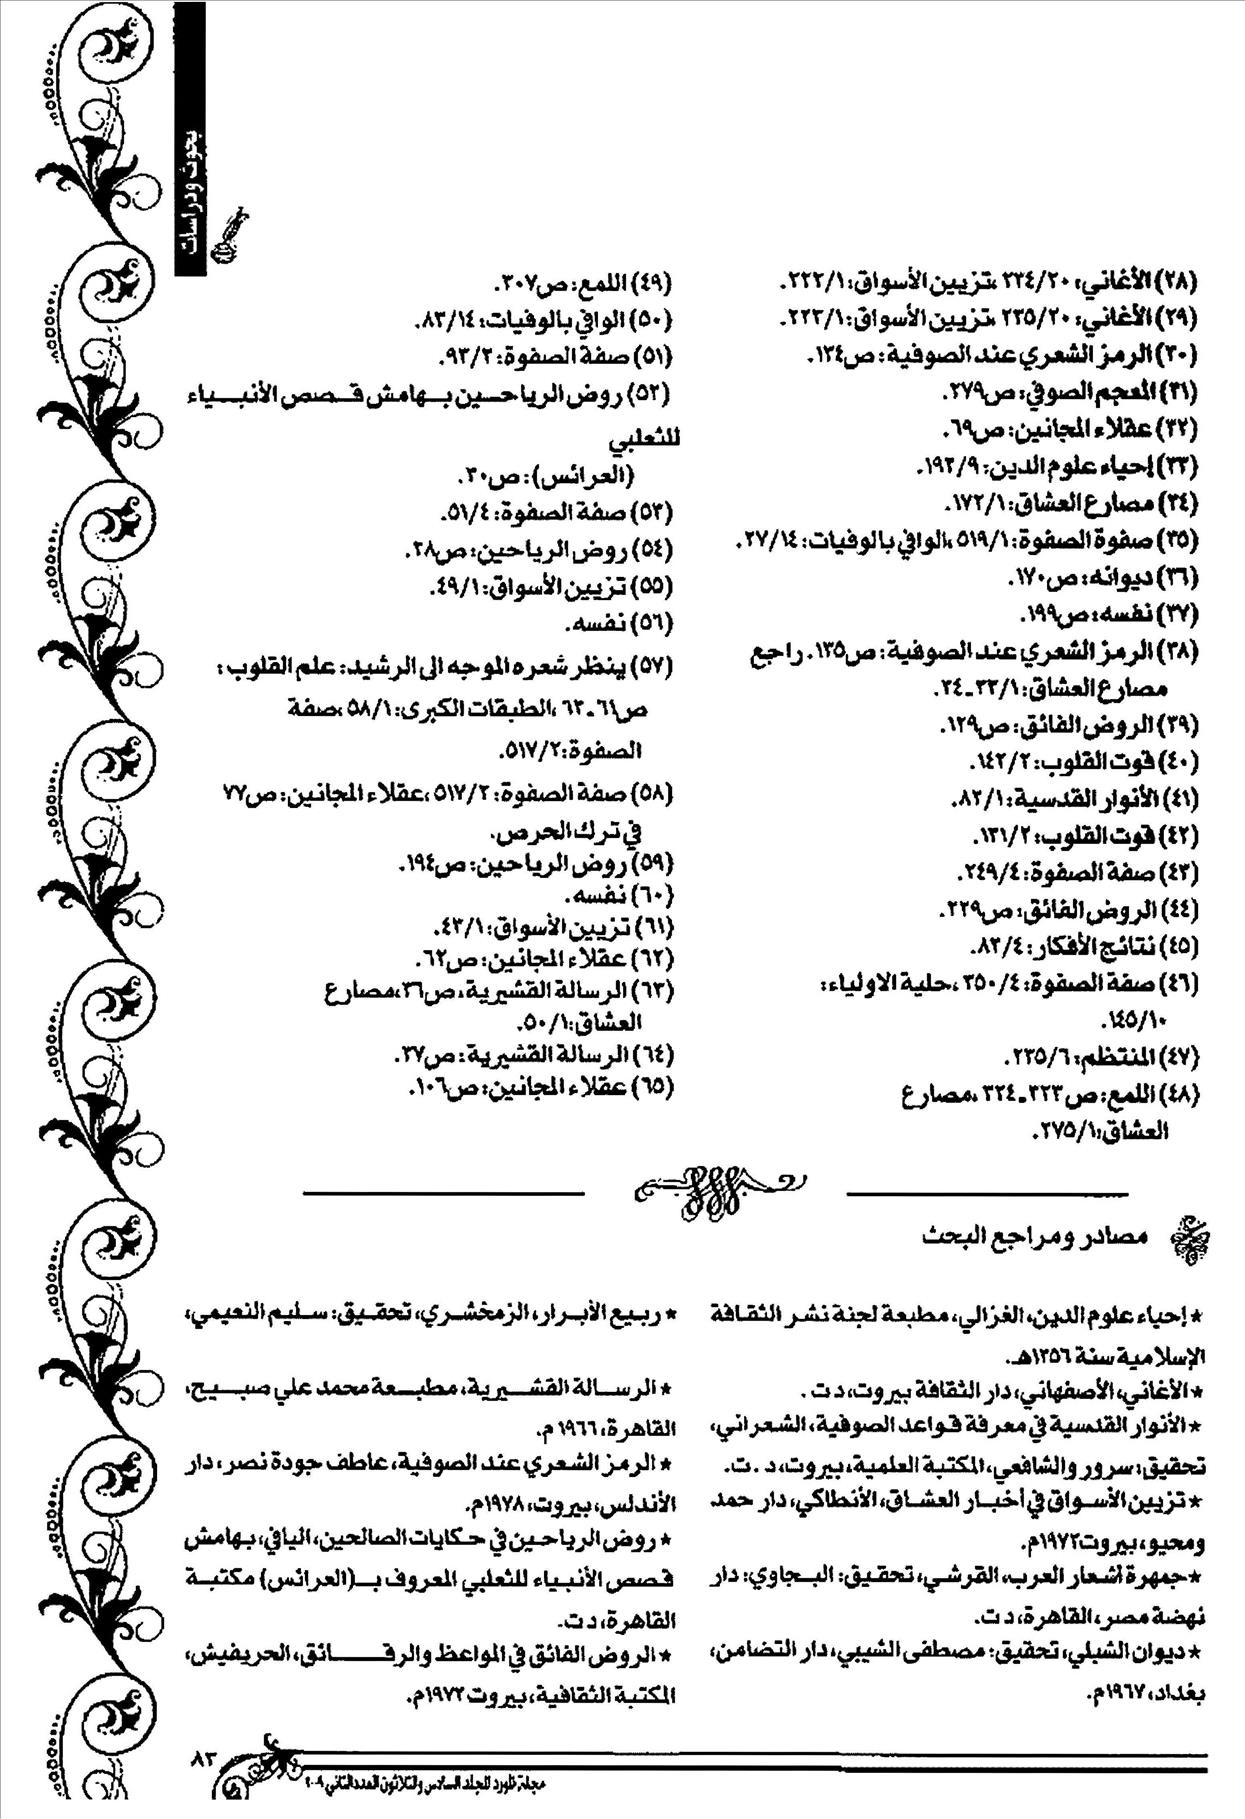 بحوث ودراسات
(٢٨) الأغاني: ٢٠/ ٢٣٤، تزيين الأسواق: ١/ ٢٢٢.
(٢٩) الأغاني: ٢٠/ ٢٣٥، تزيين الأسواق: ١/ ٢٢٣.
(٣٠) الرمز الشعري عند الصوفية: ص١٣٤.
(٣١) المعجم الصوفي: ص٢٧٩.
(٣٢) عقلاء المجانين: ص٦٩.
(٣٣) إحياء علوم الدين: ٩/ ١٩٢.
(٣٤) مصارع العشاق: ١/ ١٧٢.
(٣٥) صفوة الصفوة: ١/ ٥١٩، الوافي بالوفيات: ١٤/ ٢٧.
(٣٦) ديوانه: ص١٧٠.
(٣٧) نفسه: ص١٩٩.
(٣٨) الرمز الشعري عند الصوفية: ص١٣٥. راجع
مصارع العشاق: ١/ ٣٣ـ ٣٤.
(٣٩) الروض الفائق: ص١٢٩.
(٤٠) قوت القلوب: ٢/ ١٤٢.
(٤١) الأنوار القدسية: ١/ ٨٢.
(٤٢) قوت القلوب: ٢/ ١٣١.
(٤٣) صفة الصفوة: ٤/ ٢٤٩.
(٤٤) الروض الفائق: ص٢٢٩.
(٤٥) نتائج الأفكار: ٤/ ٨٢.
(٤٦) صفة الصفوة: ٤/ ٣٥٠، حلية الاولياء:
١٠/ ١٤٥.
(٤٧) المنتظم: ٦/ ٢٣٥.
(٤٨) اللمع: ص٢٢٣ـ ٣٢٤، مصارع
العشاق: ١/ ٢٧٥.
(٤٩) اللمع: ص٣٠٧.
(٥٠) الوافي بالوفيات: ١٤/ ٨٣.
(٥١) صفة الصفوة: ٢/ ٩٣.
(٥٢) روض الرياحين بهامش قصص الأنبياء
للثعلبي
(العرائس): ص٣٠.
(٥٣) صفة الصفوة: ٤/ ٥١.
(٥٤) روض الرياحين: ص٢٨.
(٥٥) تزيين الأسواق: ١/ ٤٩.
(٥٦) نفسه.
(٥٧) ينظر شعره الموجه الى الرشيد: علم القلوب:
ص٦١ـ ٦٢، الطبقات الكبرى: ١/ ٥٨، صفة
الصفوة: ٢/ ٥١٧.
(٥٨) صفة الصفوة: ٢/ ٥١٧، عقلاء المجانين: ص٧٧
في ترك الحرص.
(٥٩) روض الرياحين: ص١٩٤.
(٦٠) نفسه.
(٦١) تزيين الأسواق: ١/ ٤٣.
(٦٢) عقلاء المجانين: ص٦٢.
(٦٣) الرسالة القشيرية، ص٣٦، مصارع
العشاق: ١/ ٥٠.
(٦٤) الرسالة القشيرية: ص٣٧.
(٦٥) عقلاء المجانين: ص١٠٦.
مصادر ومراجع البحث
* إحياء علوم الدين، الغزالي، مطبعة لجنة نشر الثقافة
الإسلامية سنة ١٣٥٦هـ.
* الأغاني، الأصفهاني، دار الثقافة بيروت، د ت.
* الأنوار القدسية في معرفة قواعد الصوفية، الشعراني،
تحقيق: سرور والشافعي، المكتبة العلمية، بيروت، د . ت.
* تزيين الأسواق في أخبار العشاق، الأنطاكي، دار حمد
ومحيو، بيروت ١٩٧٢م.
* جمهرة أشعار العرب، القرشي، تحقيق: البجاوي: دار
نهضة مصر، القاهرة، د ت.
* ديوان الشبلي، تحقيق: مصطفى الشيبي، دار التضامن،
بغداد، ١٩٦٧م.
* ربيع الأبرار، الزمخشري، تحقيق: سليم النعيمي،
* الرسالة القشيرية، مطبعة محمد علي صبيح،
القاهرة، ١٩٦٦م.
* الرمز الشعري عند الصوفية، عاطف جودة نصر، دار
الأندلس، بيروت، ١٩٧٨م.
* روض الرياحين في حكايات الصالحين، اليافي، بهامش
قصص الأنبياء للثعلبي المعروف بـ(العرائس) مكتبة
القاهرة، د ت.
* الروض الفائق في المواعظ والرقائق، الحريفيش،
المكتبة الثقافية، بيروت ١٩٧٢م.
مجلة المورد المجلد السادس والثلاثون العدد الثاني ٢٠٠٩
٨٣